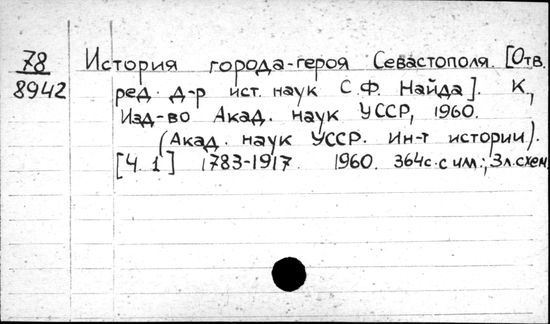 78
8942
История города-героя Севастополя. [Отв.
ред. д-р ист. наук С.Ф. Найда]. К.,
Изд-во Акад. наук УССР, 1960.
(Акад. наук УССР. Ин-т истории).
[Ч. 1] 1783-1917. 1960. 364с. с илл.; 3л.схем.